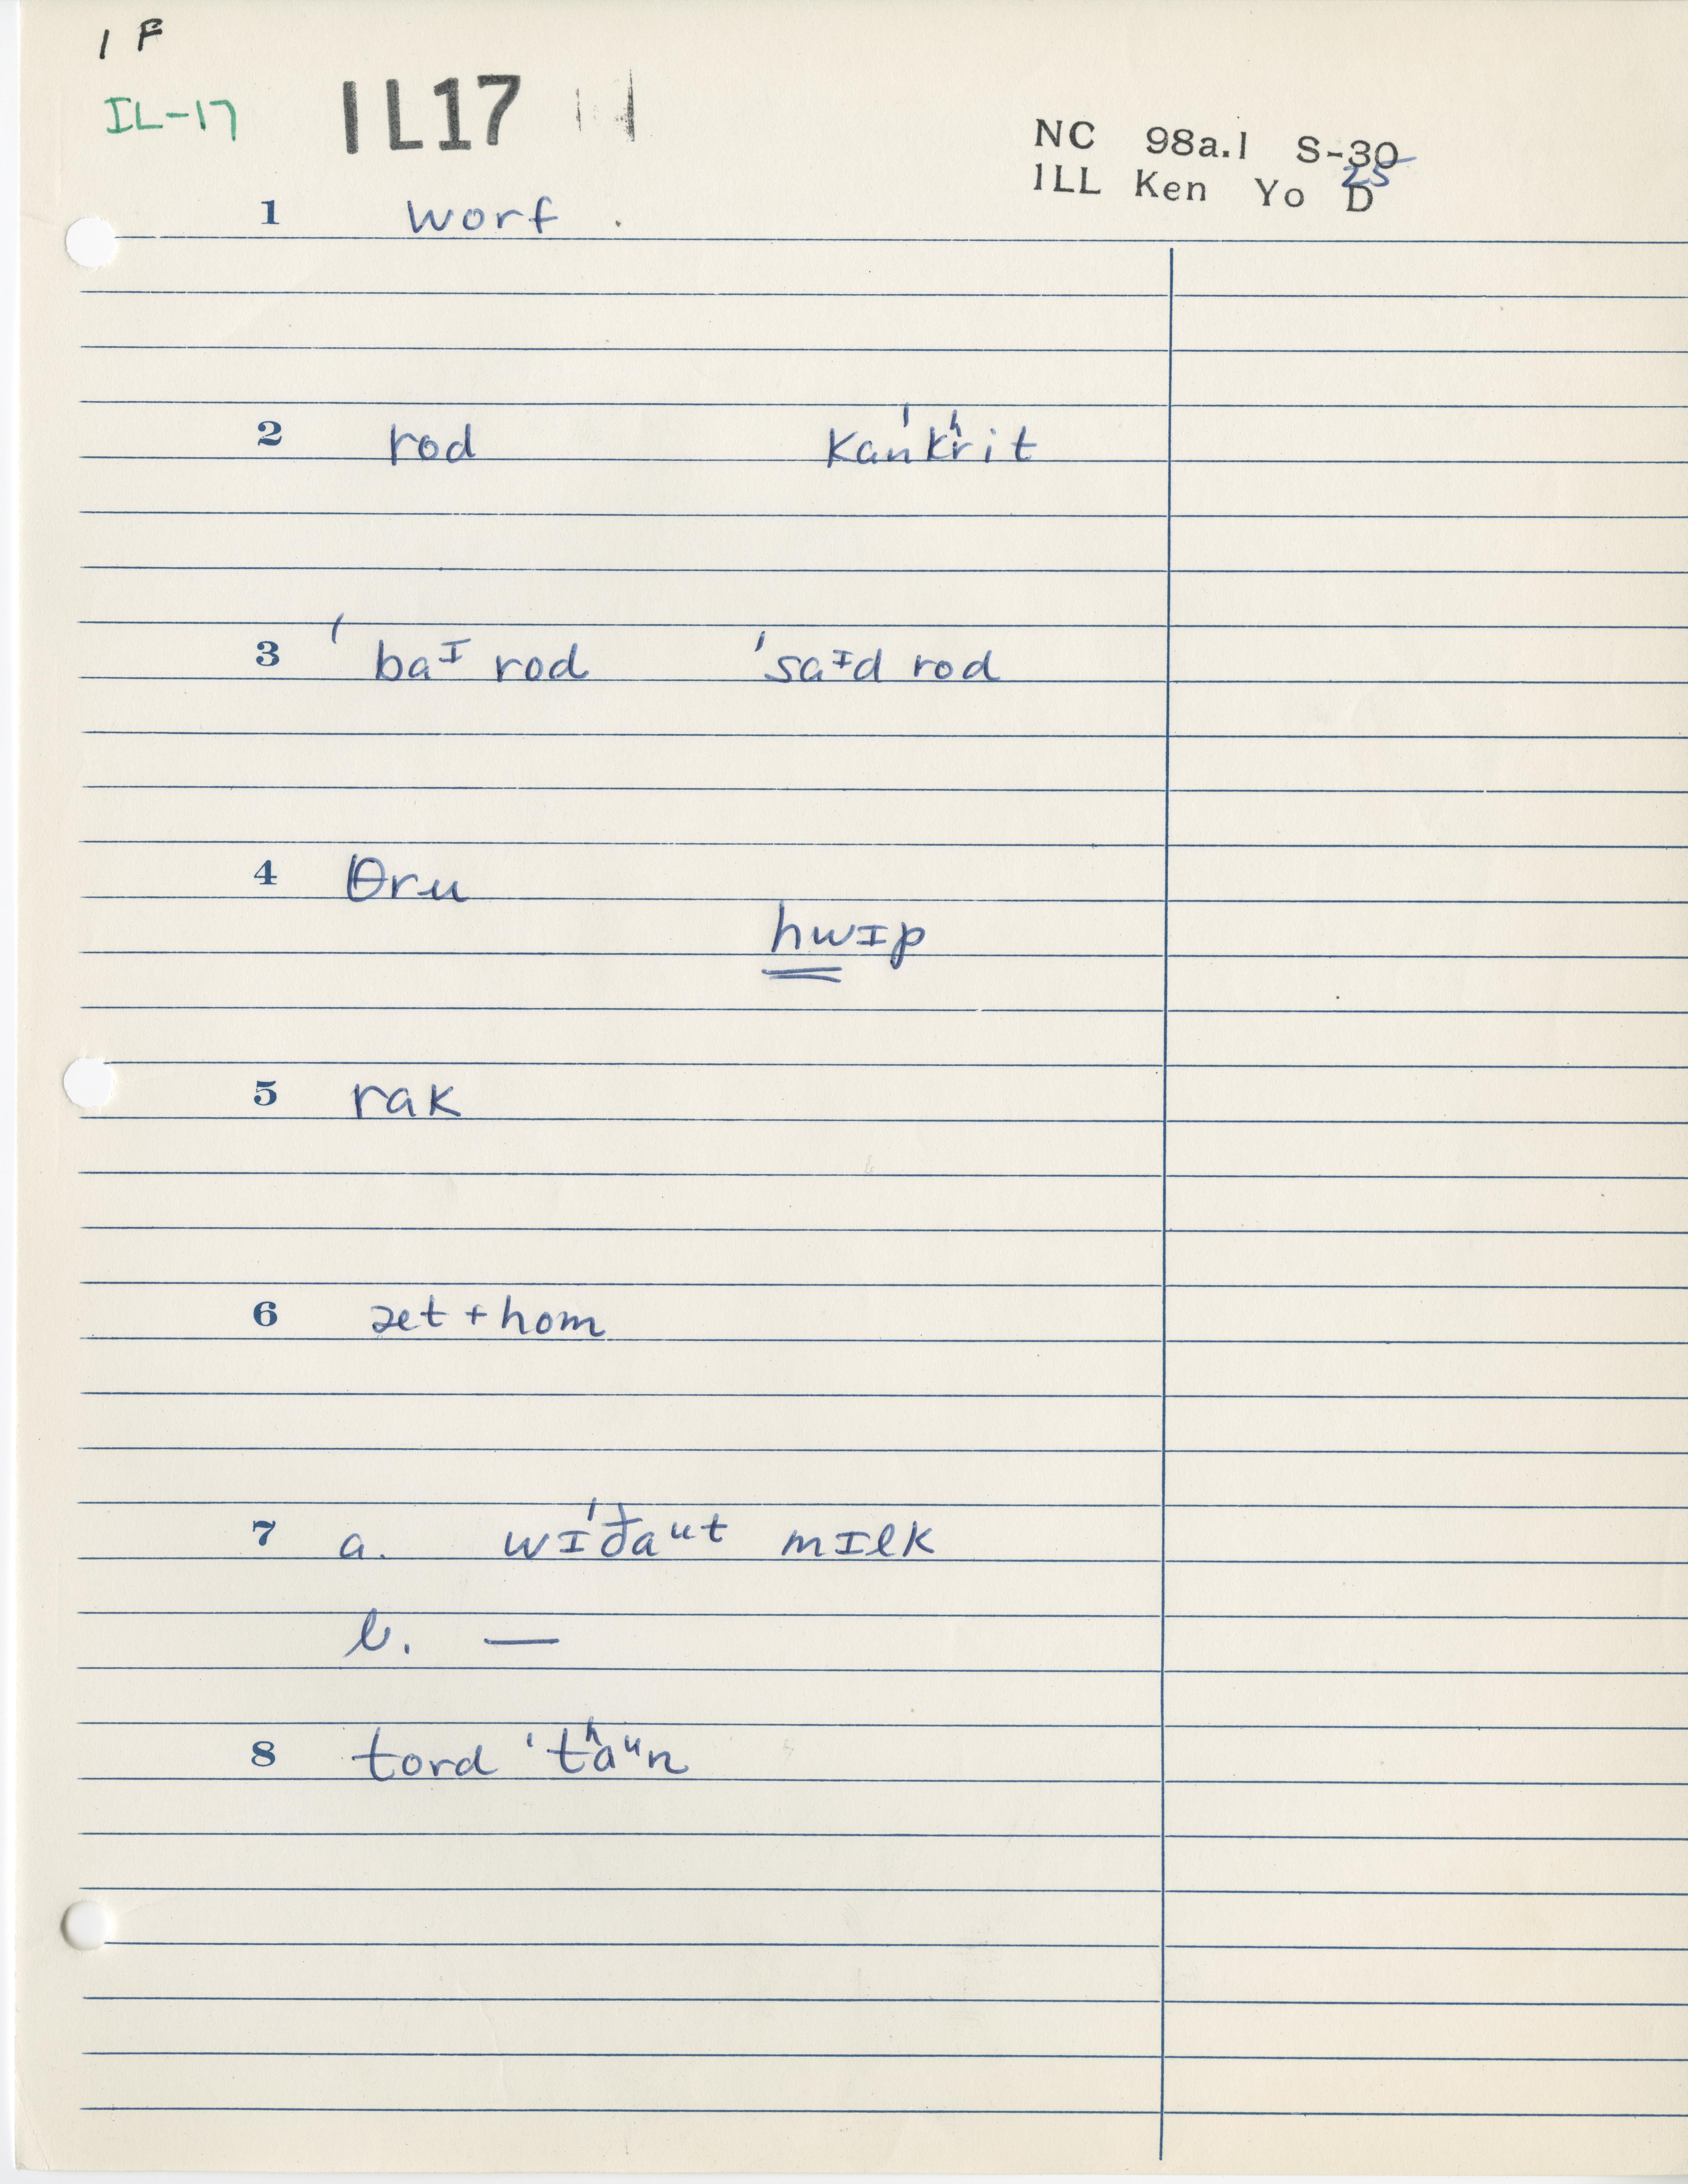 1 F
IL-17 IL17
NC 98a.1 S-30
25
ILL Ken Yo D
1 worf
2 rod kan'kʰrit
3 'baᴵ rod 'saᴵd rod
4 θru
hwɪp
5 rak
6 æt + hom
7 a. wɪ'ðaᵘt mɪlk
b. —
8 tord 'tʰaᵘn